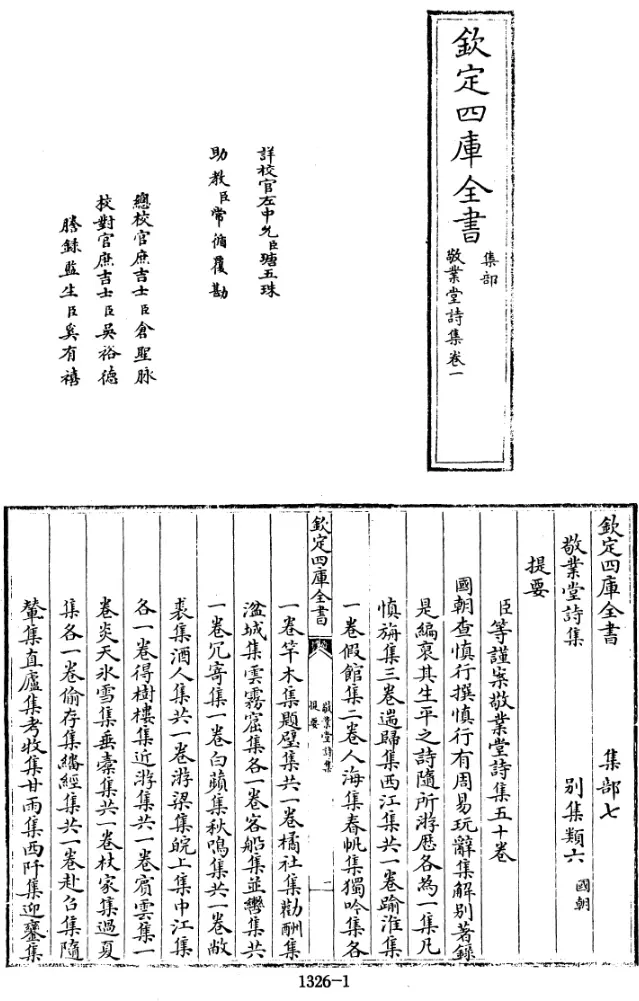 欽定四庫全書
集部
敬業堂詩集卷一
詳校官左中允臣瑭五珠
助教臣常循覆勘
總校官庶吉士臣倉聖脉
校對官庶吉士臣吳裕德
謄錄監生臣奚有禧
欽定四庫全書　集部七
敬業堂詩集　別集類六國朝
提要
臣等謹案敬業堂詩集五十卷
國朝查慎行撰慎行有周易玩辭集解別著錄
是編裒其生平之詩隨所游歷各為一集凡
慎旃集三卷遄歸集西江集共一卷踰淮集
一卷假館集二卷人海集春帆集獨吟集各
欽定四庫全書
敬業堂詩集
提要
二
一卷竿木集題壁集共一卷橘社集勸酬集
湓城集雲霧窟集各一卷客船集並轡集共
一卷冗寄集一卷白蘋集秋鳴集共一卷敝
裘集酒人集共一卷游梁集皖上集中江集
各一卷得樹樓集近游集共一卷賓雲集一
卷炎天冰雪集垂槖集共一卷杖家集過夏
集各一卷偷存集繙經集共一卷赴召集隨
輦集直廬集考牧集甘雨集西阡集迎鑾集
1326-1